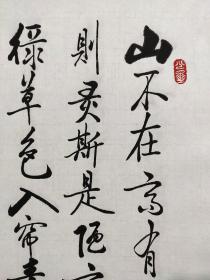 山不在高有
則灵斯是陋
綠草色入帘青